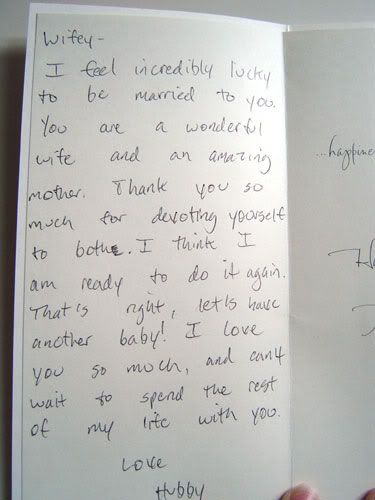 Wifey-
I feel incredibly lucky
to be married to you.
You are a wonderful
wife and an amazing
mother. Thank you so
much for devoting yourself
to both. I think I
am ready to do it again.
That's right, let's have
another baby! I love
you so much, and can't
wait to spend the rest
of my life with you.
Love
Hubby
...happine